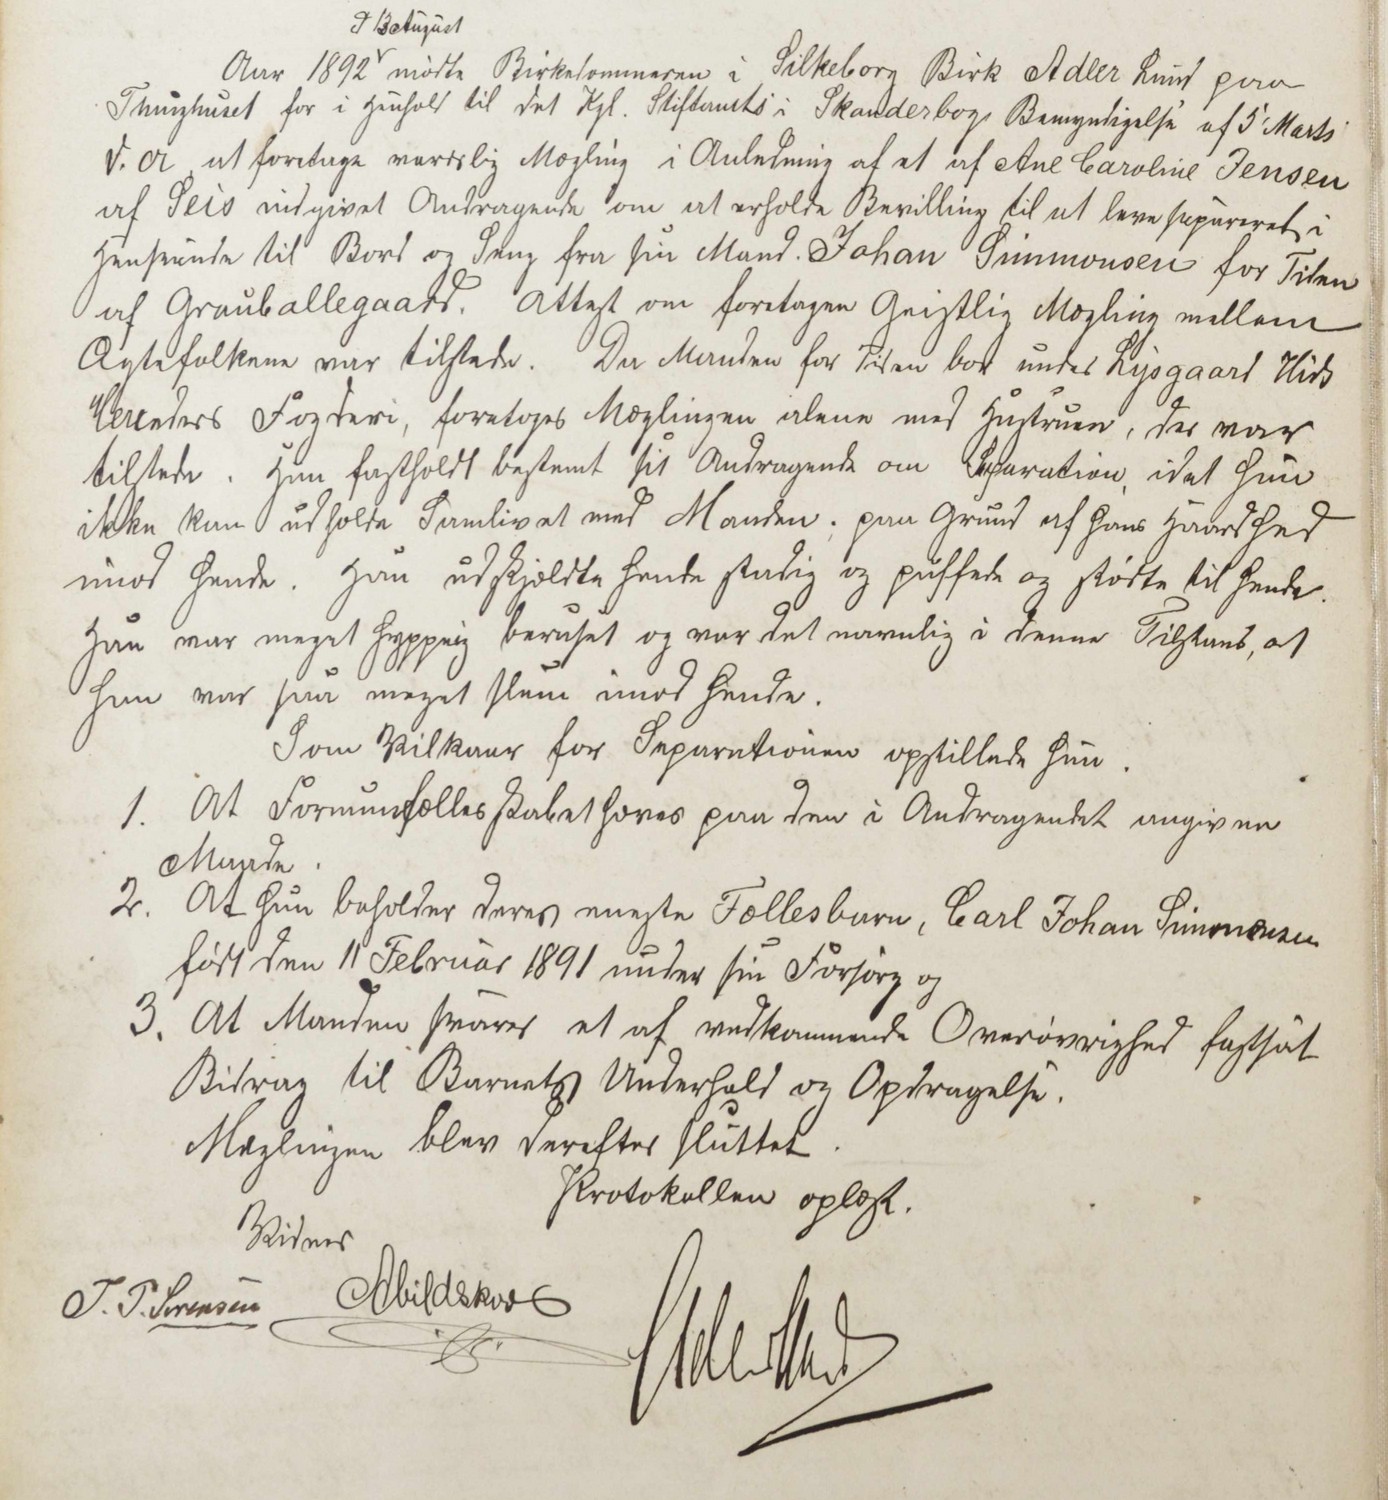 d 13 August
Aar 1892 mødte Birkedommeren i Silkeborg Birk Adler Lund paa
Thinghuset for i Henhold til det Kgl. Stiftamts i Skanderborg Bemyndigelse af 5' Marts
d. A at foretage verdslig Mægling i Anledning af et af Ane Caroline Jensen
af Seis indgivet Andragende om at erholde Bevilling til at leve separeret i
Henseende til Bord og Seng fra sin Mand. Johan Simmonsen for Tiden
af Grauballegaard. Attest om foretagen Geistlig Mægling mellem
Ægtefolkene var tilstede. Da Manden for Tiden bor under Lysgaard Hids
Herreders Fogderi, foretoges Mæglingen alene med Hustruen, der var
tilstede. Hun fastholdt bestemt sit Andragende om Separation, idet hun
ikke kan udholde Samlivet med Manden, paa Grund af hans Haardhed
imod hende. Han udskjældte hende stadig og puffede og stødte til hende.
Han var meget hyppig beruset og var det navnlig i denne Tilstand, at
han var saa meget slem imod hende.
Som Vilkaar for Separationen opstillede hun.
1. At Formuesfællesskabet hæves paa den i Andragendet angivne
Maade.
2. At hun beholder deres eneste Fællesbarn, Carl Johan Simmonsen
født den 11 Februar 1891 under sin Forsørg og
3. At Manden svarer et af vedkommende Overøvrighed fastsat
Bidrag til Barnets Underhold og Opdragelse.
Mæglingen blev derefter sluttet.
Protokollen oplæst.
Vidner
J. P. Sørensen Abildskov Adler Lund